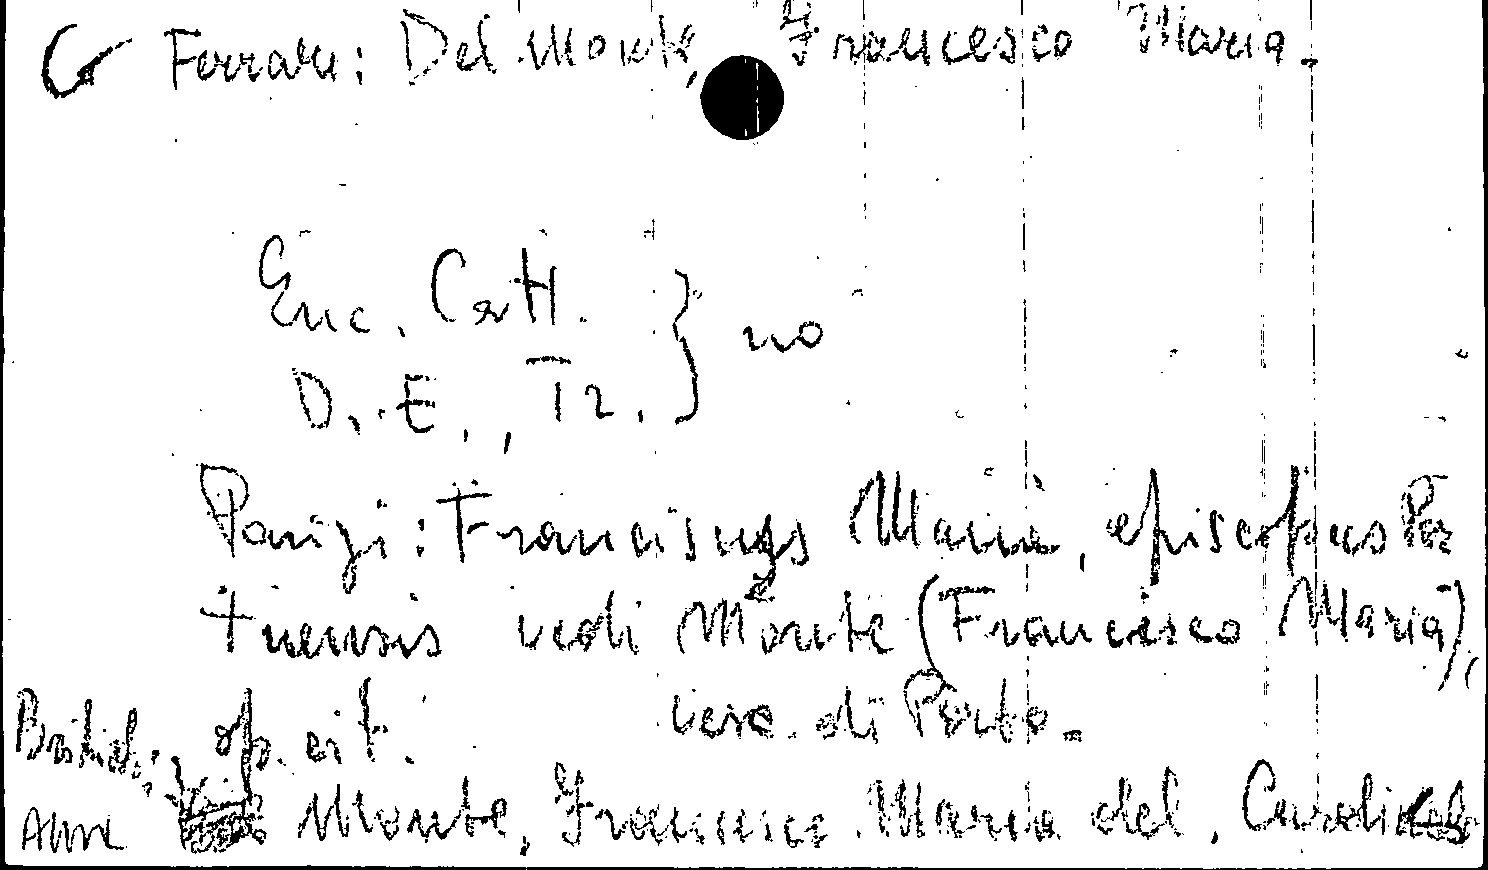 Ferrari: Del Monte, Francesco Maria.
Enc. Catt.
D. E., Tr. } no
Parigi: Franciscus Maria, episcopus Por
tuensis vedi Monte (Francesco Maria),
vesc. di Porto.
British: op. cit.
Monte, Francesco Maria del, Cardinal